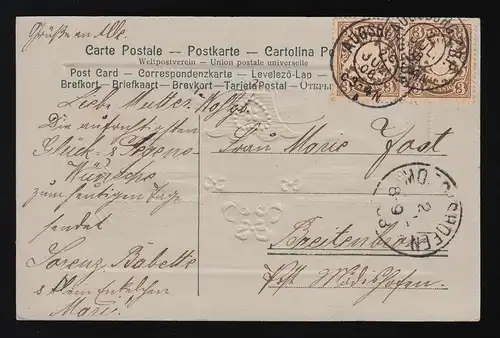 Grüße an Alle.
Carte Postale – Postkarte – Cartolina
Weltpostverein – Union postale universelle
Post Card – Correspondenzkarte – Levelező-Lap
Brefkort – Briefkaart – Brevkort – Tarjeta Postal – ОТКРЫ
Liebe Mutter
Die aufrichtigsten
Glück- & Segens-
Wünsche
zum heutigen Tage
sendet
Lorenz, Babette
& klein Enkelchen
Marie.
AUGSBURG
3
3
Frau Marie Jost
Breitenbronn
Post Modishofen